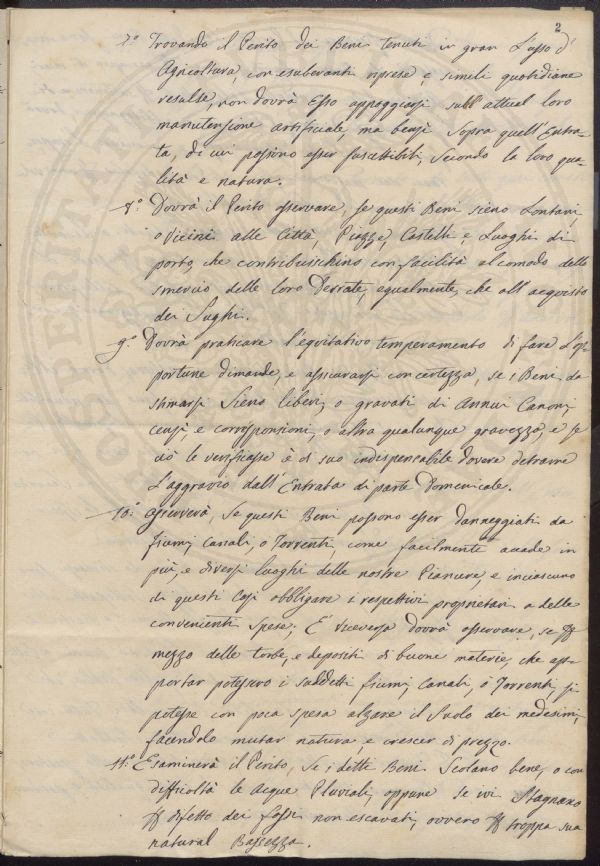 2
7.º Trovando il Perito dei Beni tenuti in gran Lusso d'
Agricoltura, con esuberanti riprese, e simili quotidiane
resulse, non dovrà Esso appoggiarsi sull'attual loro
manutenzione artificiale, ma bensì sopra quell'Entra-
ta, di cui possono esser suscettibili, secondo la loro qua-
lità e natura.
8.º Dovrà il Perito osservare, se questi Beni sieno Lontani,
o Vicini alle Città, Piazze, Castelli, e Luoghi di
porto, che contribuischino con facilità al comodo dello
smercio delle loro Derrate, egualmente, che all'acquisto
dei Sughi.
9.º Dovrà praticare l'equitativo temperamento di fare l'op-
portune dimande, e assicurarsi con certezza, se i Beni da
stimarsi sieno liberi, o gravati di Annui Canoni,
censi, e corrisponsioni, o altra qualunque gravezza, e se
ciò se verificasse è di suo indispensabile dovere detrarre
l'aggravio dall'Entrata di parte Domenicale.
10.º Osserverà, se questi Beni possono esser danneggiati da
fiumi, Canali, o Torrenti, come facilmente accade in
più, e diversi luoghi delle nostre Pianure, e in ciascuno
di questi Casi obbligare i respettivi proprietari a delle
convenienti spese; E viceversa dovrà osservare, se per
mezzo delle torbe, e depositi di buone materie, che ap-
portar potessero i suddetti fiumi, Canali, o Torrenti, si
potesse con poca spesa alzare il suolo dei medesimi,
facendolo mutar natura, e crescer di prezzo.
11.º Esaminerà il Perito, se i detti Beni Scolano bene, o con
difficoltà le Acque Pluviali, oppure se ivi Stagnano
per difetto dei fossi non escavati, ovvero per troppa sua
natural Bassezza.